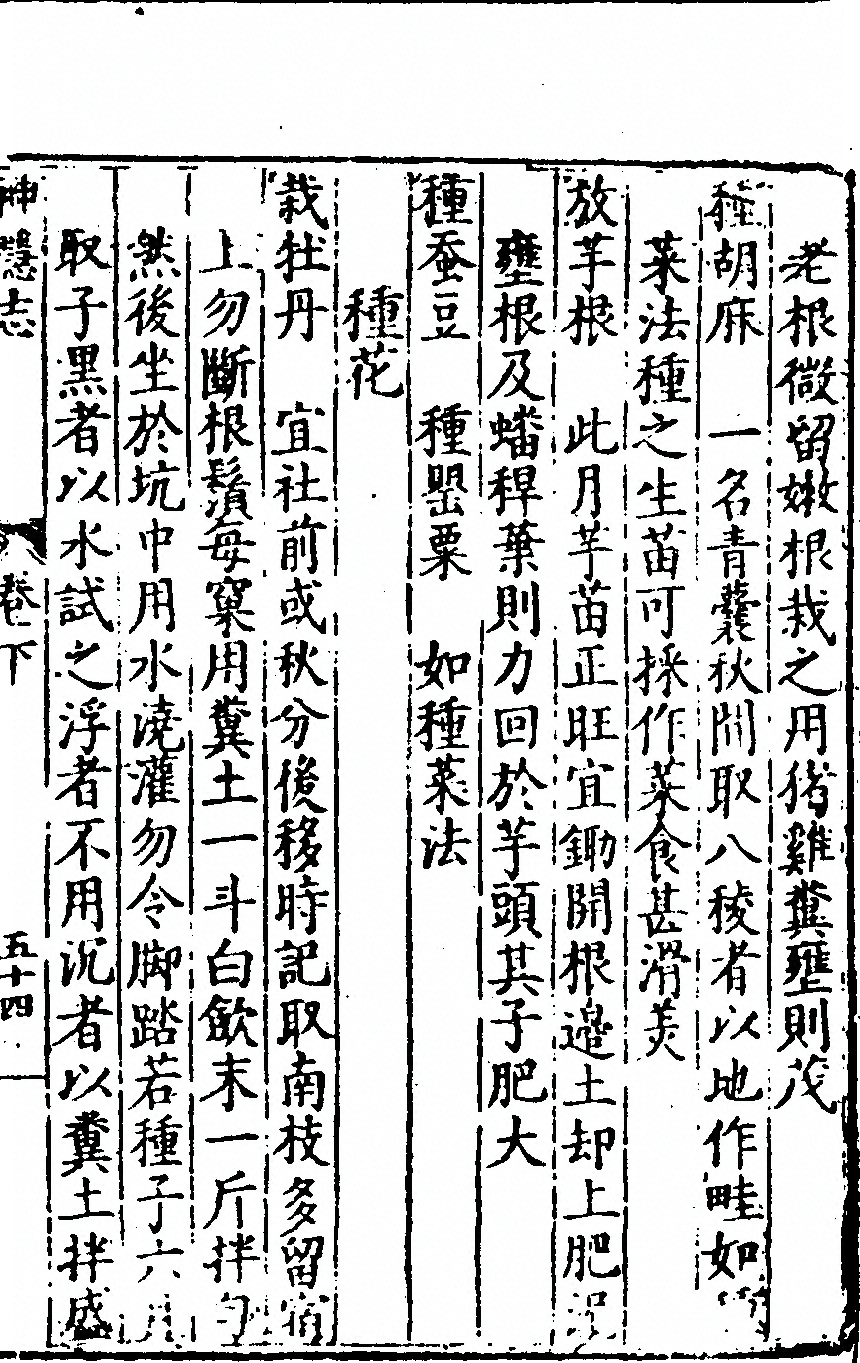 老根微留嫩根栽之用猪雞糞壅則茂
種胡麻　一名青蘘秋間取八稜者以地作畦如
菜法種之生苗可採作菜食甚滑美
放芋根　此月芋苗正旺宜鋤開根邉土却上肥泥
壅根及蟠稈葉則力回於芋頭其子肥大
種蚕豆　種罌粟　如種菜法
種花
栽牡丹　宜社前或秋分後移時記取南枝多留宿
上勿斷根鬚每窠用糞土一斗白斂末一斤拌勻
然後坐於坑中用水澆灌勿令脚踏若種子六月
取子黑者以水試之浮者不用沉者以糞土拌盛
神隱志　卷下　五十四